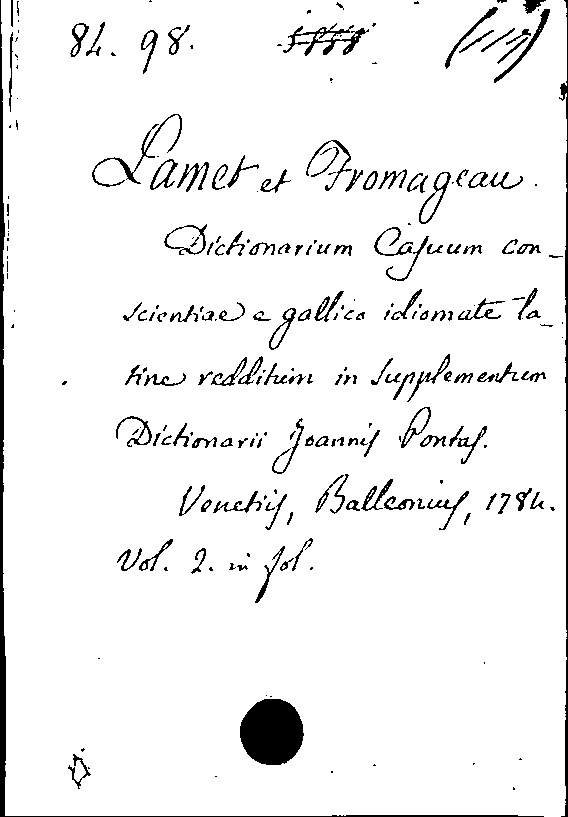 84. 98. 5888 (117)
Lamet et Fromageau.
Dictionarium Casuum con-
scientiae e gallico idiomate la-
tine redditum in supplementum
Dictionarii Joannis Pontas.
Venetiis, Balleonius, 1784.
Vol. 2. in fol.